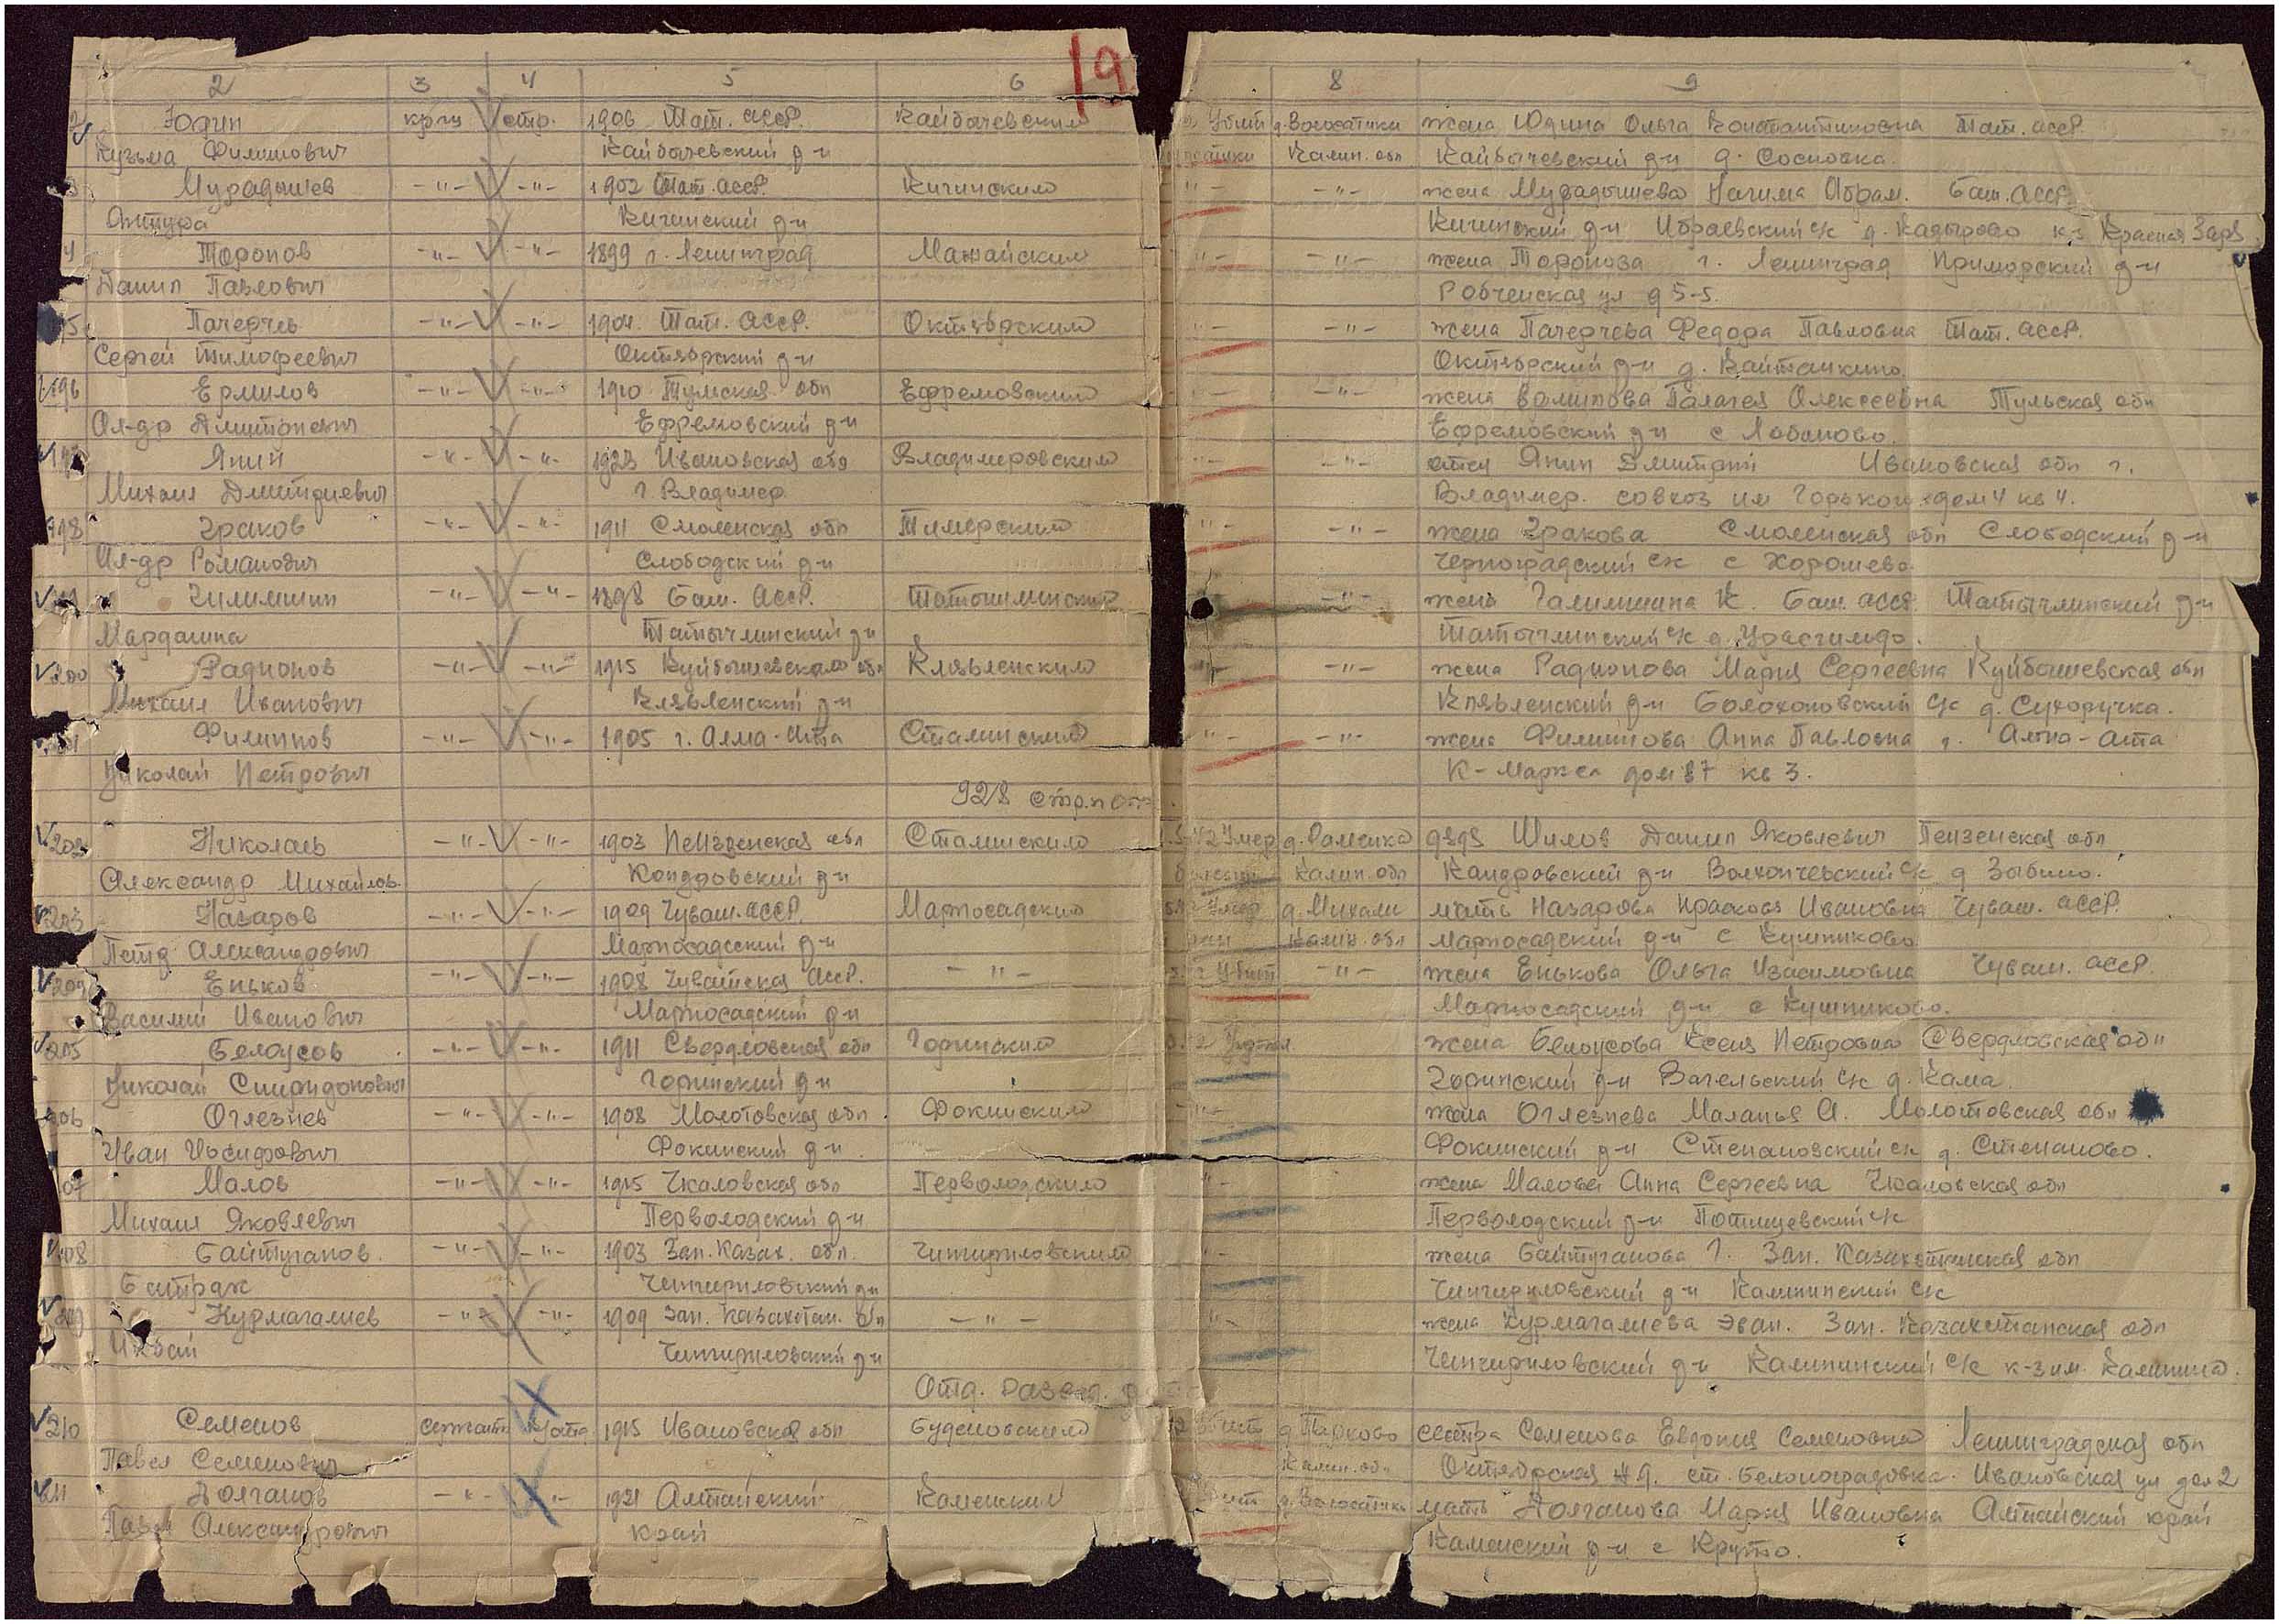 2 3 4 5 6 19 8 9
Юдин кр-ц стр. 1906 Тат. АССР. Кайбычевским убит д. Волосатики жена Юдина Ольга Константиновна Тат. АССР.
Кузьма Филипович Кайбычевский р-н Калин. обл Кайбычевский р-н д. Сосновка.
Мурадышев -"- -"- 1902 Тат. АССР. Кигинским -"- -"- жена Мурадышева Нагима Абрам. Баш. АССР
Кигинский р-н Кигинский р-н Ибраевский с/с д. Кадырово к-з Красная Заря
4 Торопов -"- -"- 1899 г. Ленинград Можайским -"- -"- жена Торопова г. Ленинград Приморский р-н
Данил Павлович ул д 5-5.
Пагерчев -"- -"- 1904. Тат. АССР. Октябрским -"- -"- жена Пагерчева Федора Павловна Тат. АССР.
Сергей Тимофеевич Октябрский р-н Октябрский р-н д. Вайтанкино.
196 Ермилов -"- -"- 1910 Тульская обл Ефремовским -"- -"- жена Палагея Алексеевна Тульская обл
Ал-др Ефремовский р-н Ефремовский р-н с Лобаново.
Янин -"- -"- 1923 Ивановская обл Владимеровским -"- -"- отец Янин Дмитрий Ивановская обл г.
Михаил Дмитриевич г Владимер. Владимер. совхоз им Горького дом 4 кв 4.
198 Граков -"- -"- 1911 Смоленская обл -"- -"- жена Гракова Смоленская обл Слободский р-н
Ал-др Романович Слободский р-н с/с с Хорошево
-"- -"- 1898 Баш. АССР. Татышлинским -"- жена Галимшина К. Баш. АССР Татычлинский р-н
Мардашина Татычлинский р-н Татычлинский с/с д.
200 Радионов -"- -"- 1915 Куйбышевского обл Клявленским -"- -"- жена Радионова Мария Сергеевна Куйбышевская обл
Михаил Иванович Клявленский р-н Клявленский р-н Болохоновский с/с д. Сухоручка.
Филиппов -"- -"- 1905 г. Алма-Ата Сталинским -"- -"- жена Филиппова Анна Павловна г. Алма-Ата
Николай Петрович К-Маркса дом 87 кв 3.
928 стр. п
202 Николаев -"- -"- 1903 Пензенская обл Сталинским умер д. Раменка дядя Шилов Данил Яковлевич Пензенская обл
Александр Михайлов. Кондровский р-н Калин. обл Кандровский р-н с/с д Зыбино.
203 Назаров -"- -"- 1909 Чуваш. АССР. Марпосадским умер д. Михали мать Назарова Прасковя Ивановна Чуваш. АССР.
Петр Александрович Марпосадсский р-н Калин. обл Марпосадский р-н с Кушниково.
204 Еньков -"- -"- 1908 Чувашская АССР. -"- убит -"- жена Енькова Ольга Чуваш. АССР.
Василий Иванович Марпосадский р-н Марпосадский р-н с Кушниково.
205 Белоусов -"- -"- 1911 Свердловская обл Горинским жена Белоусова Ксеня Петровна Свердловская обл
Николай Спиридонович Горинский р-н Горинский р-н Вагельский с/с д. Кама.
206 Оглезнев -"- -"- 1908 Молотовская обл. Фокинским -"- жена Оглезнева Маланья А. Молотовская обл
Иван Фокинский р-н Фокинский р-н Степановский с/с д. Степаново.
07 Малов -"- -"- 1915 Чкаловская обл Перволодским -"- жена Малова Анна Сергеевна Чкаловская обл
Михаил Яковлевич Перволодский р-н Перволодский р-н с/с
208 Байтуганов. -"- -"- 1903 Зап. Казах. обл. Чингирловским -"- жена Байтуганова Г. Зап. Казахстанская обл
Батрак Чингирловский р-н Чингирловский р-н Калининский с/с
209 Курмагалиев -"- -"- 1909 Зап. Казахстан. обл -"- -"- жена Курмагалиева Зап. Казахстанская обл
Чингирловский р-н Чингирловский р-н Калининский с/с к-з им. Калинина.
Отд. развед.
210 Семенов сержант 1915 Ивановская обл Буденовским убит д. Парково сестра Семенова Евдокия Семеновна Ленинградская обл
Павел Семенович Калин. обл Октябрская ж.д. ст. Ивановская ул дом 2
211 Долганов -"- -"- 1921 Алтайский Каменским убит д. Волосатики мать Долганова Мария Ивановна Алтайский край
Павел Александрович край Каменский р-н с Круто.